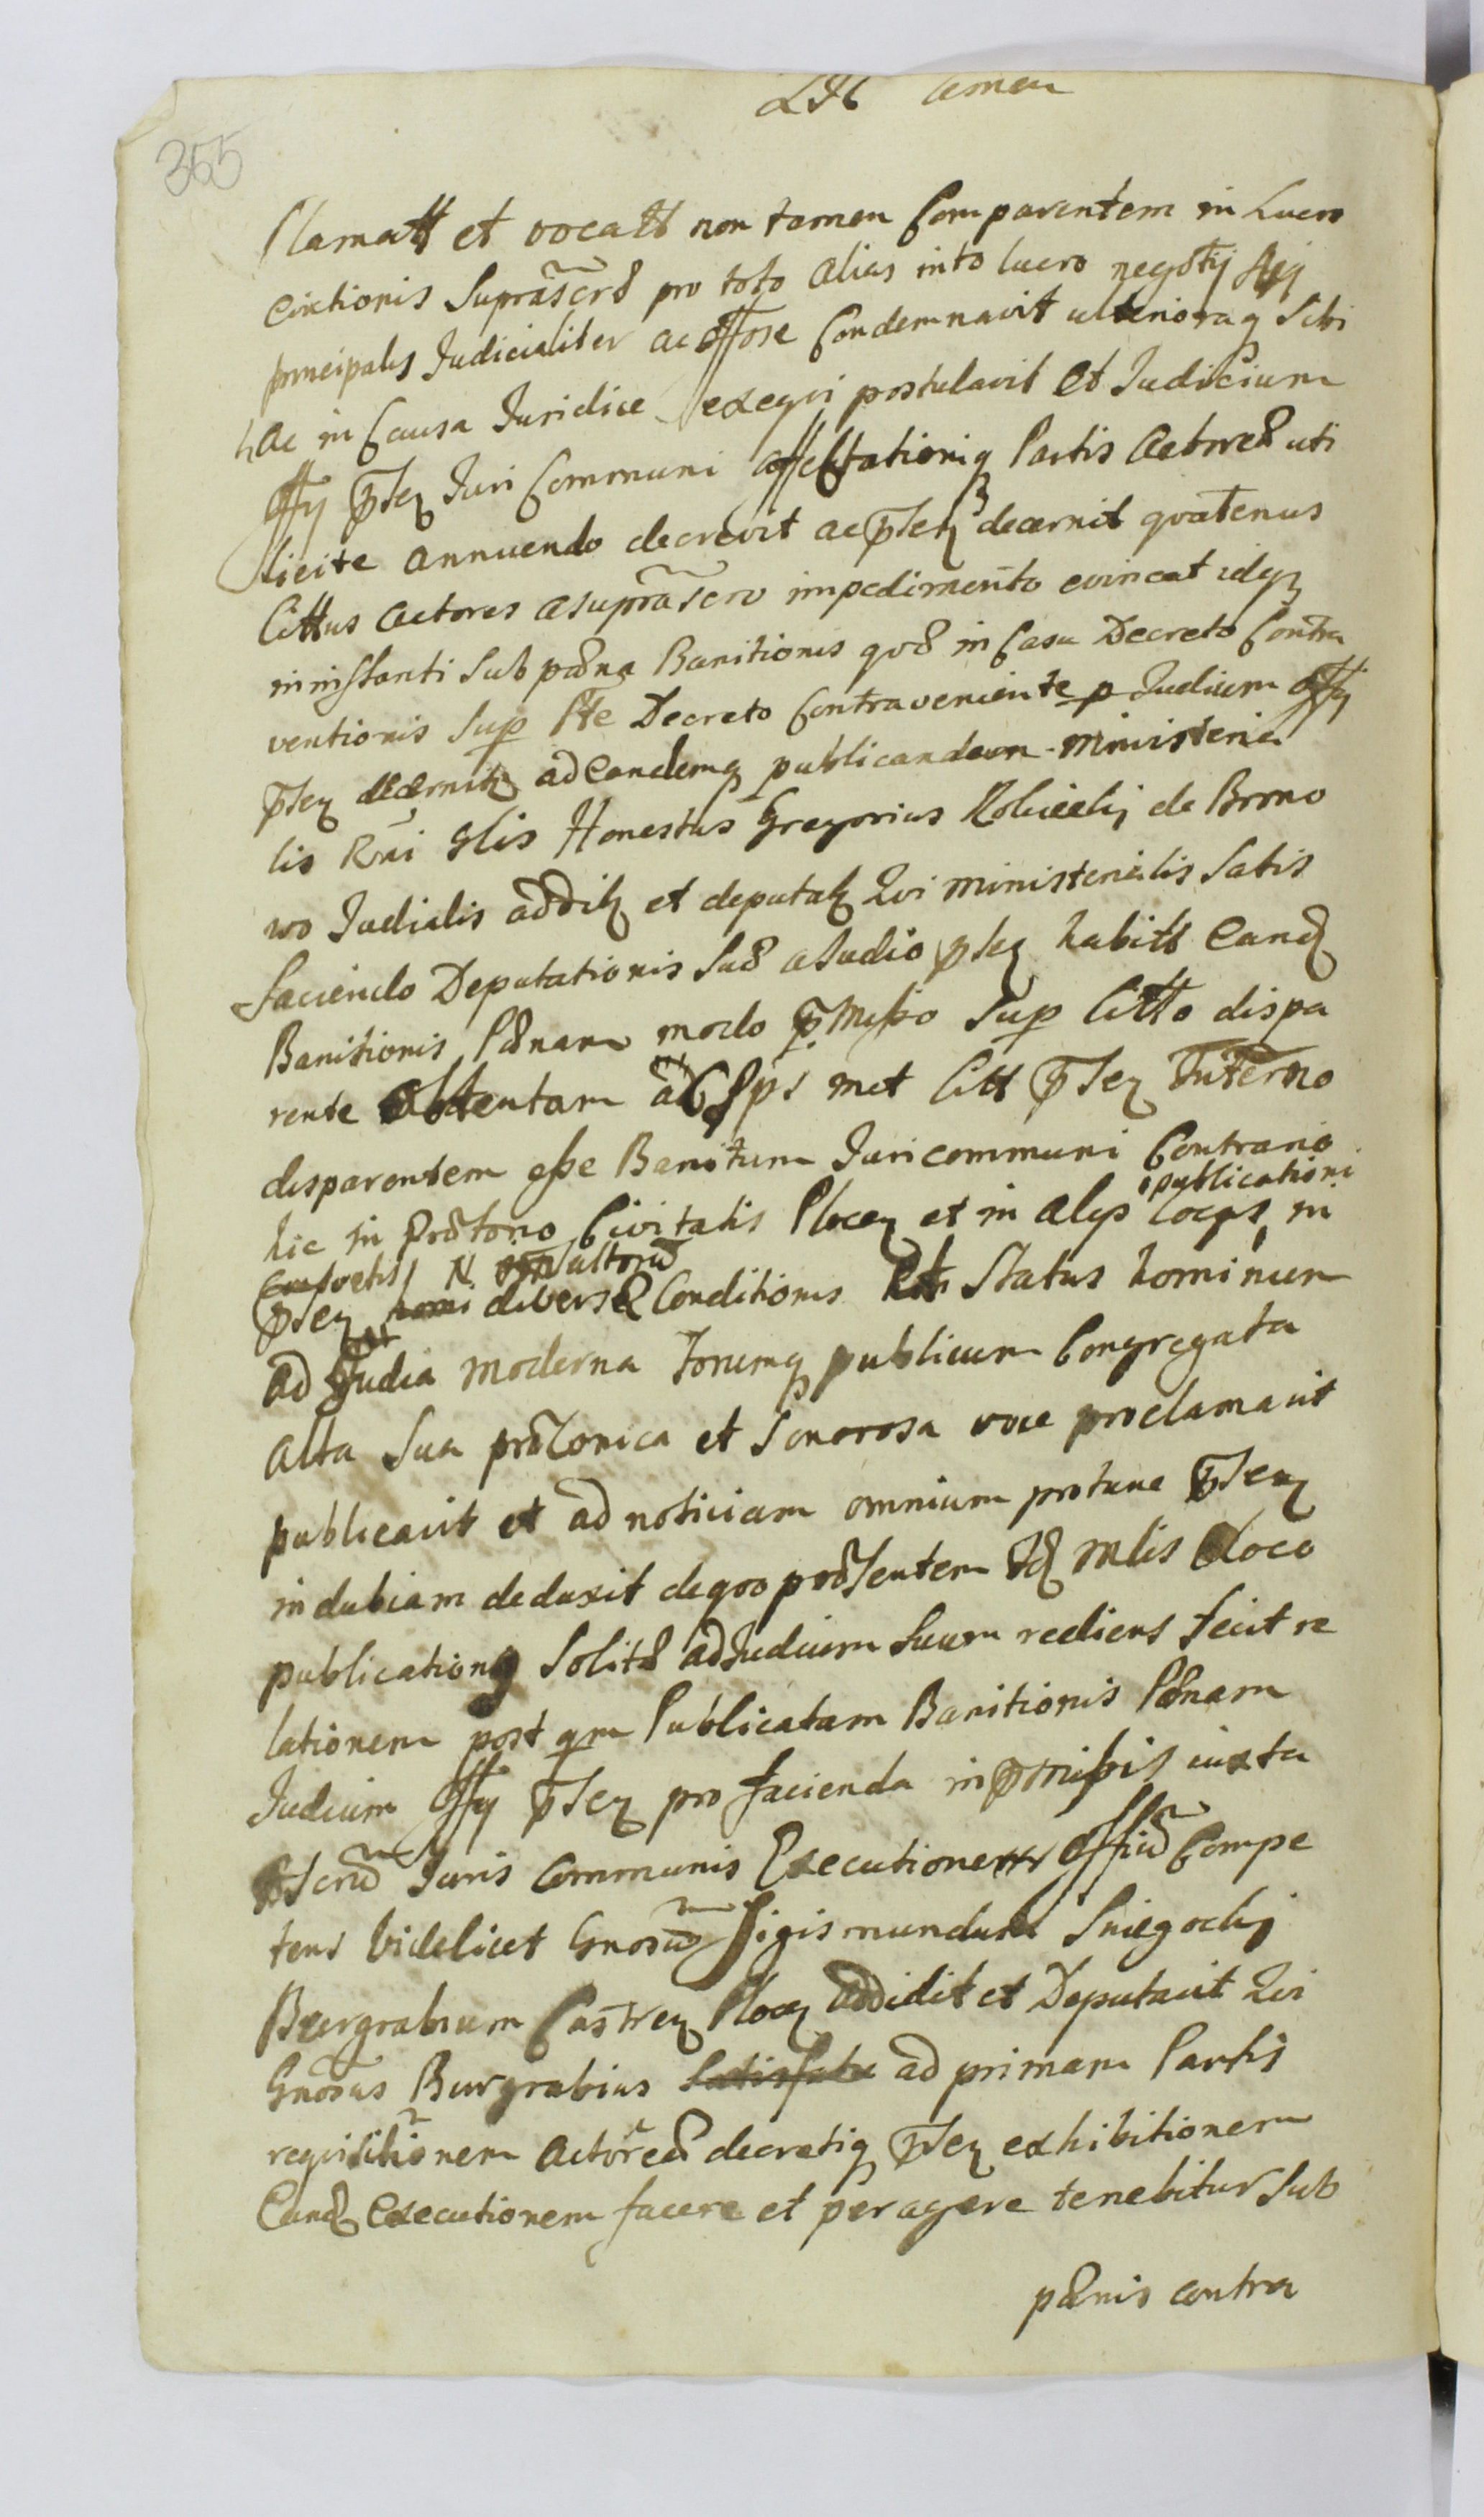 355
clamatt et vocatt non tamen Comparentem in Lucro
evictionis Suprascrõ pro toto alias into lucro negotij
principalis Judicialiter ac Offose Condemnavit ulterioraq Sibi
hac in Causa Juridice exeqvi postulavit Et Judicium
Offy p̃sez Juri Communi affectationiq Partis Actoreæ uti
licite annuendo decrevit ac p̃sez decernit qvatenus
Cittus actores a suprascro impedimento evincat idqz
in instanti Sub pæna Banitionis qvæ in Casu Decreto Contra
ventionis Sup Pte Decreto Contraveniente p Judicium Offy
p̃sez decernitz ad Eandemq publicandam Ministeria
lis Rñi Glis Honestus Gregorius de Brono
wo Judialis additz et deputatz Qvi ministerialis Satis
faciendo Deputationis Suæ a Judio p̃sez habitæ Eandz
Banitionis Pænam modo p̃misso Sup Citto dispa
rente obtentam met Citt p̃sez Interno
disparentem esse Banitum Juri communi Contrario
hic in Prætorio Civitatis Plocen et in alys locis publicationi in
Consvetis
p̃sez homi diversæ Conditionis Status hominum
ad Judia moderna Forumq publicum Congregata
alta Sua præconica et Sonorosa voce proclamavit
publicavit et ad noticiam omnium protunc p̃sez
indubiam deduxit deqvo præsentem Idz Mlis a loco
publicationq Solitæ ad Judicium Suum rediens fecit re
lationem post qm Publicatam Banitionis Pænam
Judicium Offy p̃sez pro facienda in p̃missis iuxta
Juris Communis Executione Offium Compe
tens Videlicet Gnosum Sigismundum Sniegocky
Burgrabium Castrenz Plocz addidit et Deputavit Qvi
Gnosus Burgrabius Satisfac ad primam Partis
reqvisitionem Actoreæ decretiq p̃sez exhibitionem
Eandz Executionem facere et peragere tenebitur Sub
pænis contra